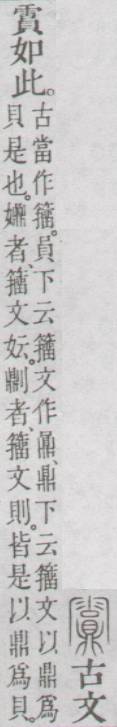 霣如此。
古當作籒。員下云籒文作𪔅、鼎下云籒文以鼎爲
貝是也。者、籒文妘。𠟭者、籒文則。皆是以鼎爲貝。
古文